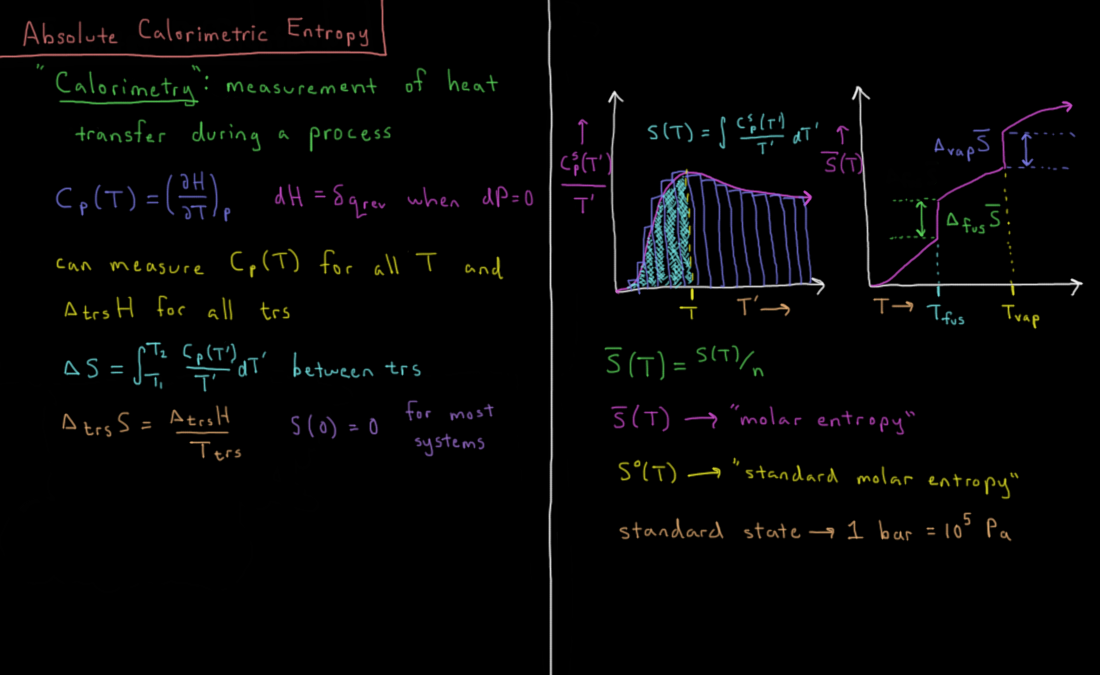 Absolute Calorimetric Entropy
"Calorimetry": measurement of heat
transfer during a process
Cp(T) = (∂H/∂T)p   dH = δqrev when dP=0
can measure Cp(T) for all T and
ΔtrsH for all trs
ΔS = ∫T₁^T₂ Cp(T')/T' dT' between trs
ΔtrsS = ΔtrsH/Ttrs   S(0) = 0 for most
systems
S(T) = ∫ Cp^s(T')/T' dT'
↑
Cp^s(T')/T'
T
T' →
↑
S̅(T)
ΔvapS̅
ΔfusS̅
T →
Tfus
Tvap
S̅(T) = S(T)/n
S̅(T) → "molar entropy"
S°(T) → "standard molar entropy"
standard state → 1 bar = 10⁵ Pa